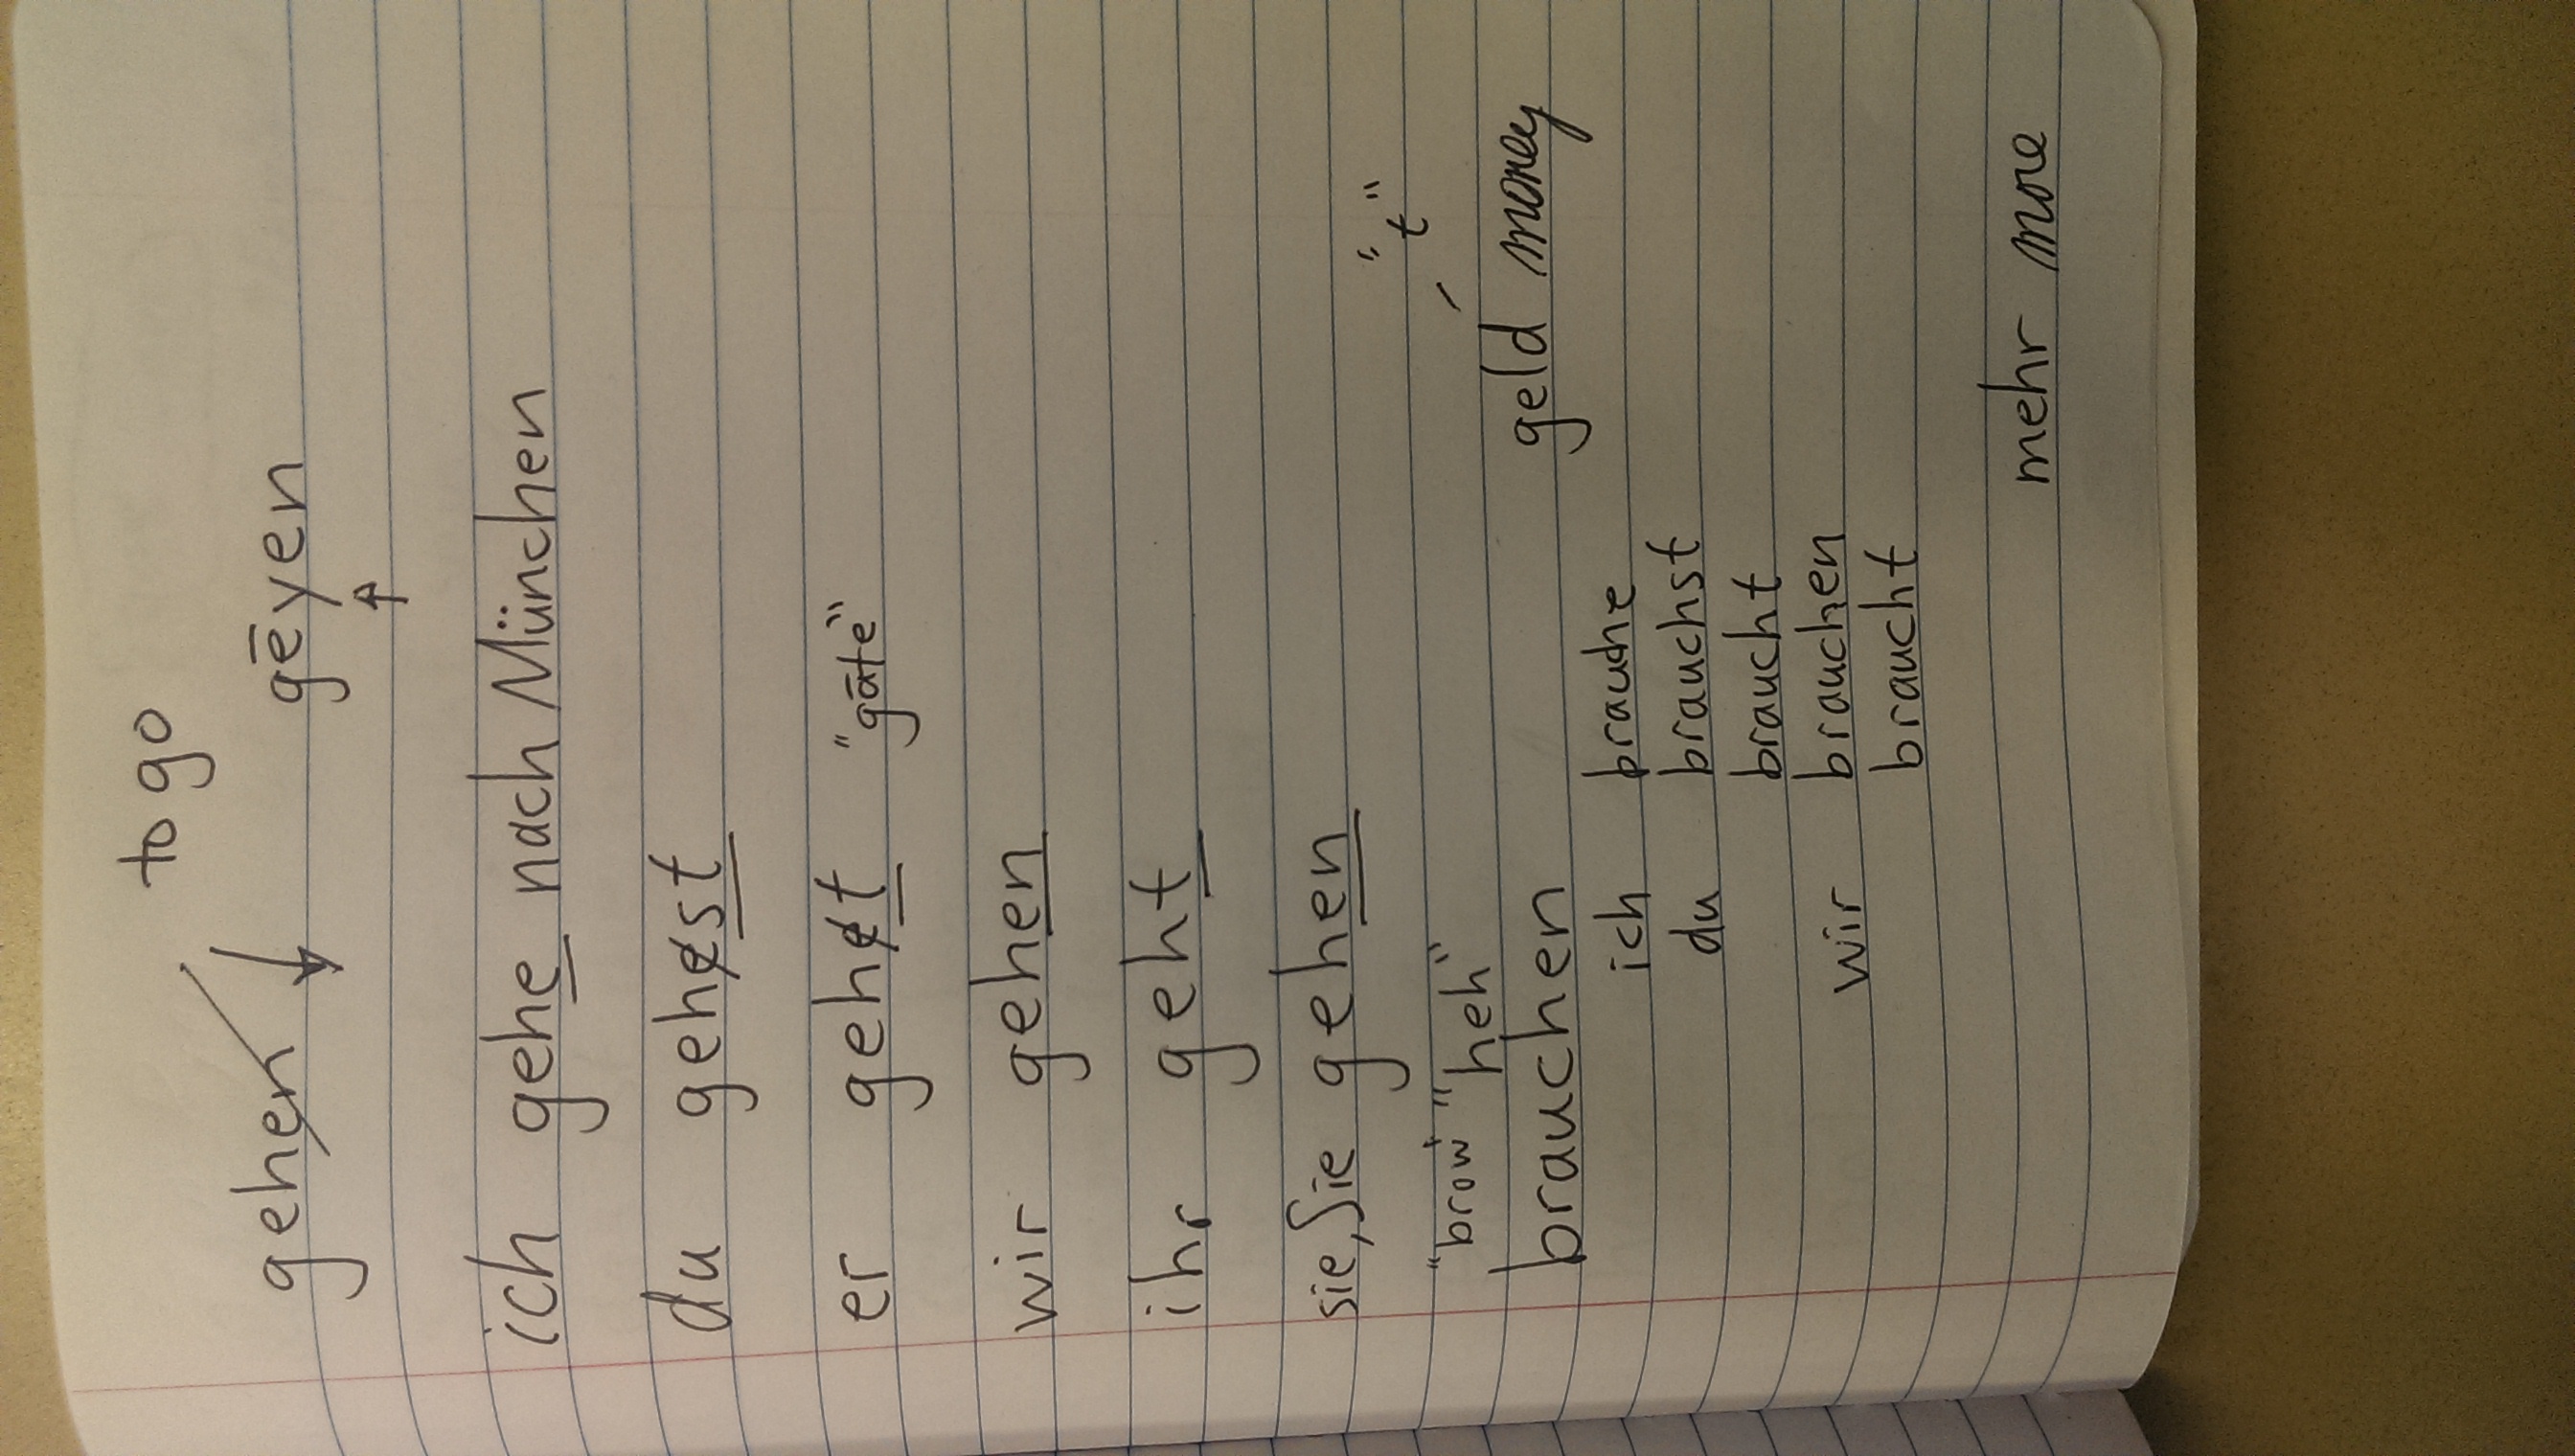 gehen to go
gēyen
ich gehe nach München
du gehest
er gehet "gāte"
wir gehen
ihr geht
sie, Sie gehen
"t"
"brow" "heh"
brauchen geld money
ich brauche
du brauchst
braucht
wir brauchen
braucht
mehr more